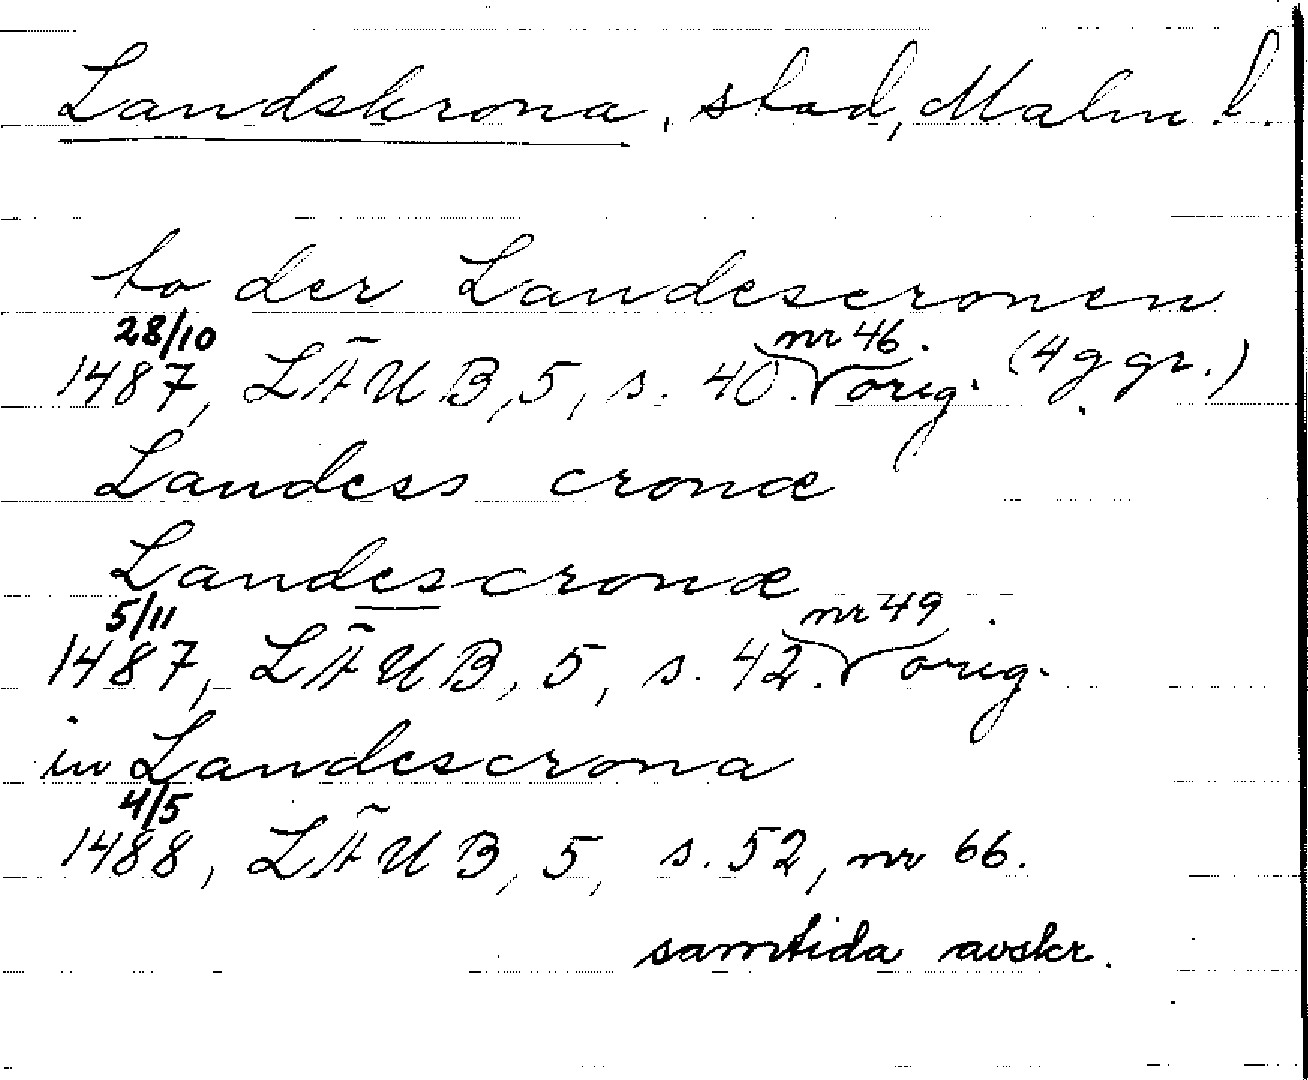 Landskrona, stad, Malm l.
to der Landescronen
28/10 nr 46.
1487, LÄUB, 5, s. 40. orig. (4 ggr.)
Landess cronæ
Landescronæ
5/11 nr 49
1487, LÄUB, 5, s. 42. orig.
in Landescrona
4/5
1488, LÄUB, 5, s. 52, nr 66.
samtida avskr.